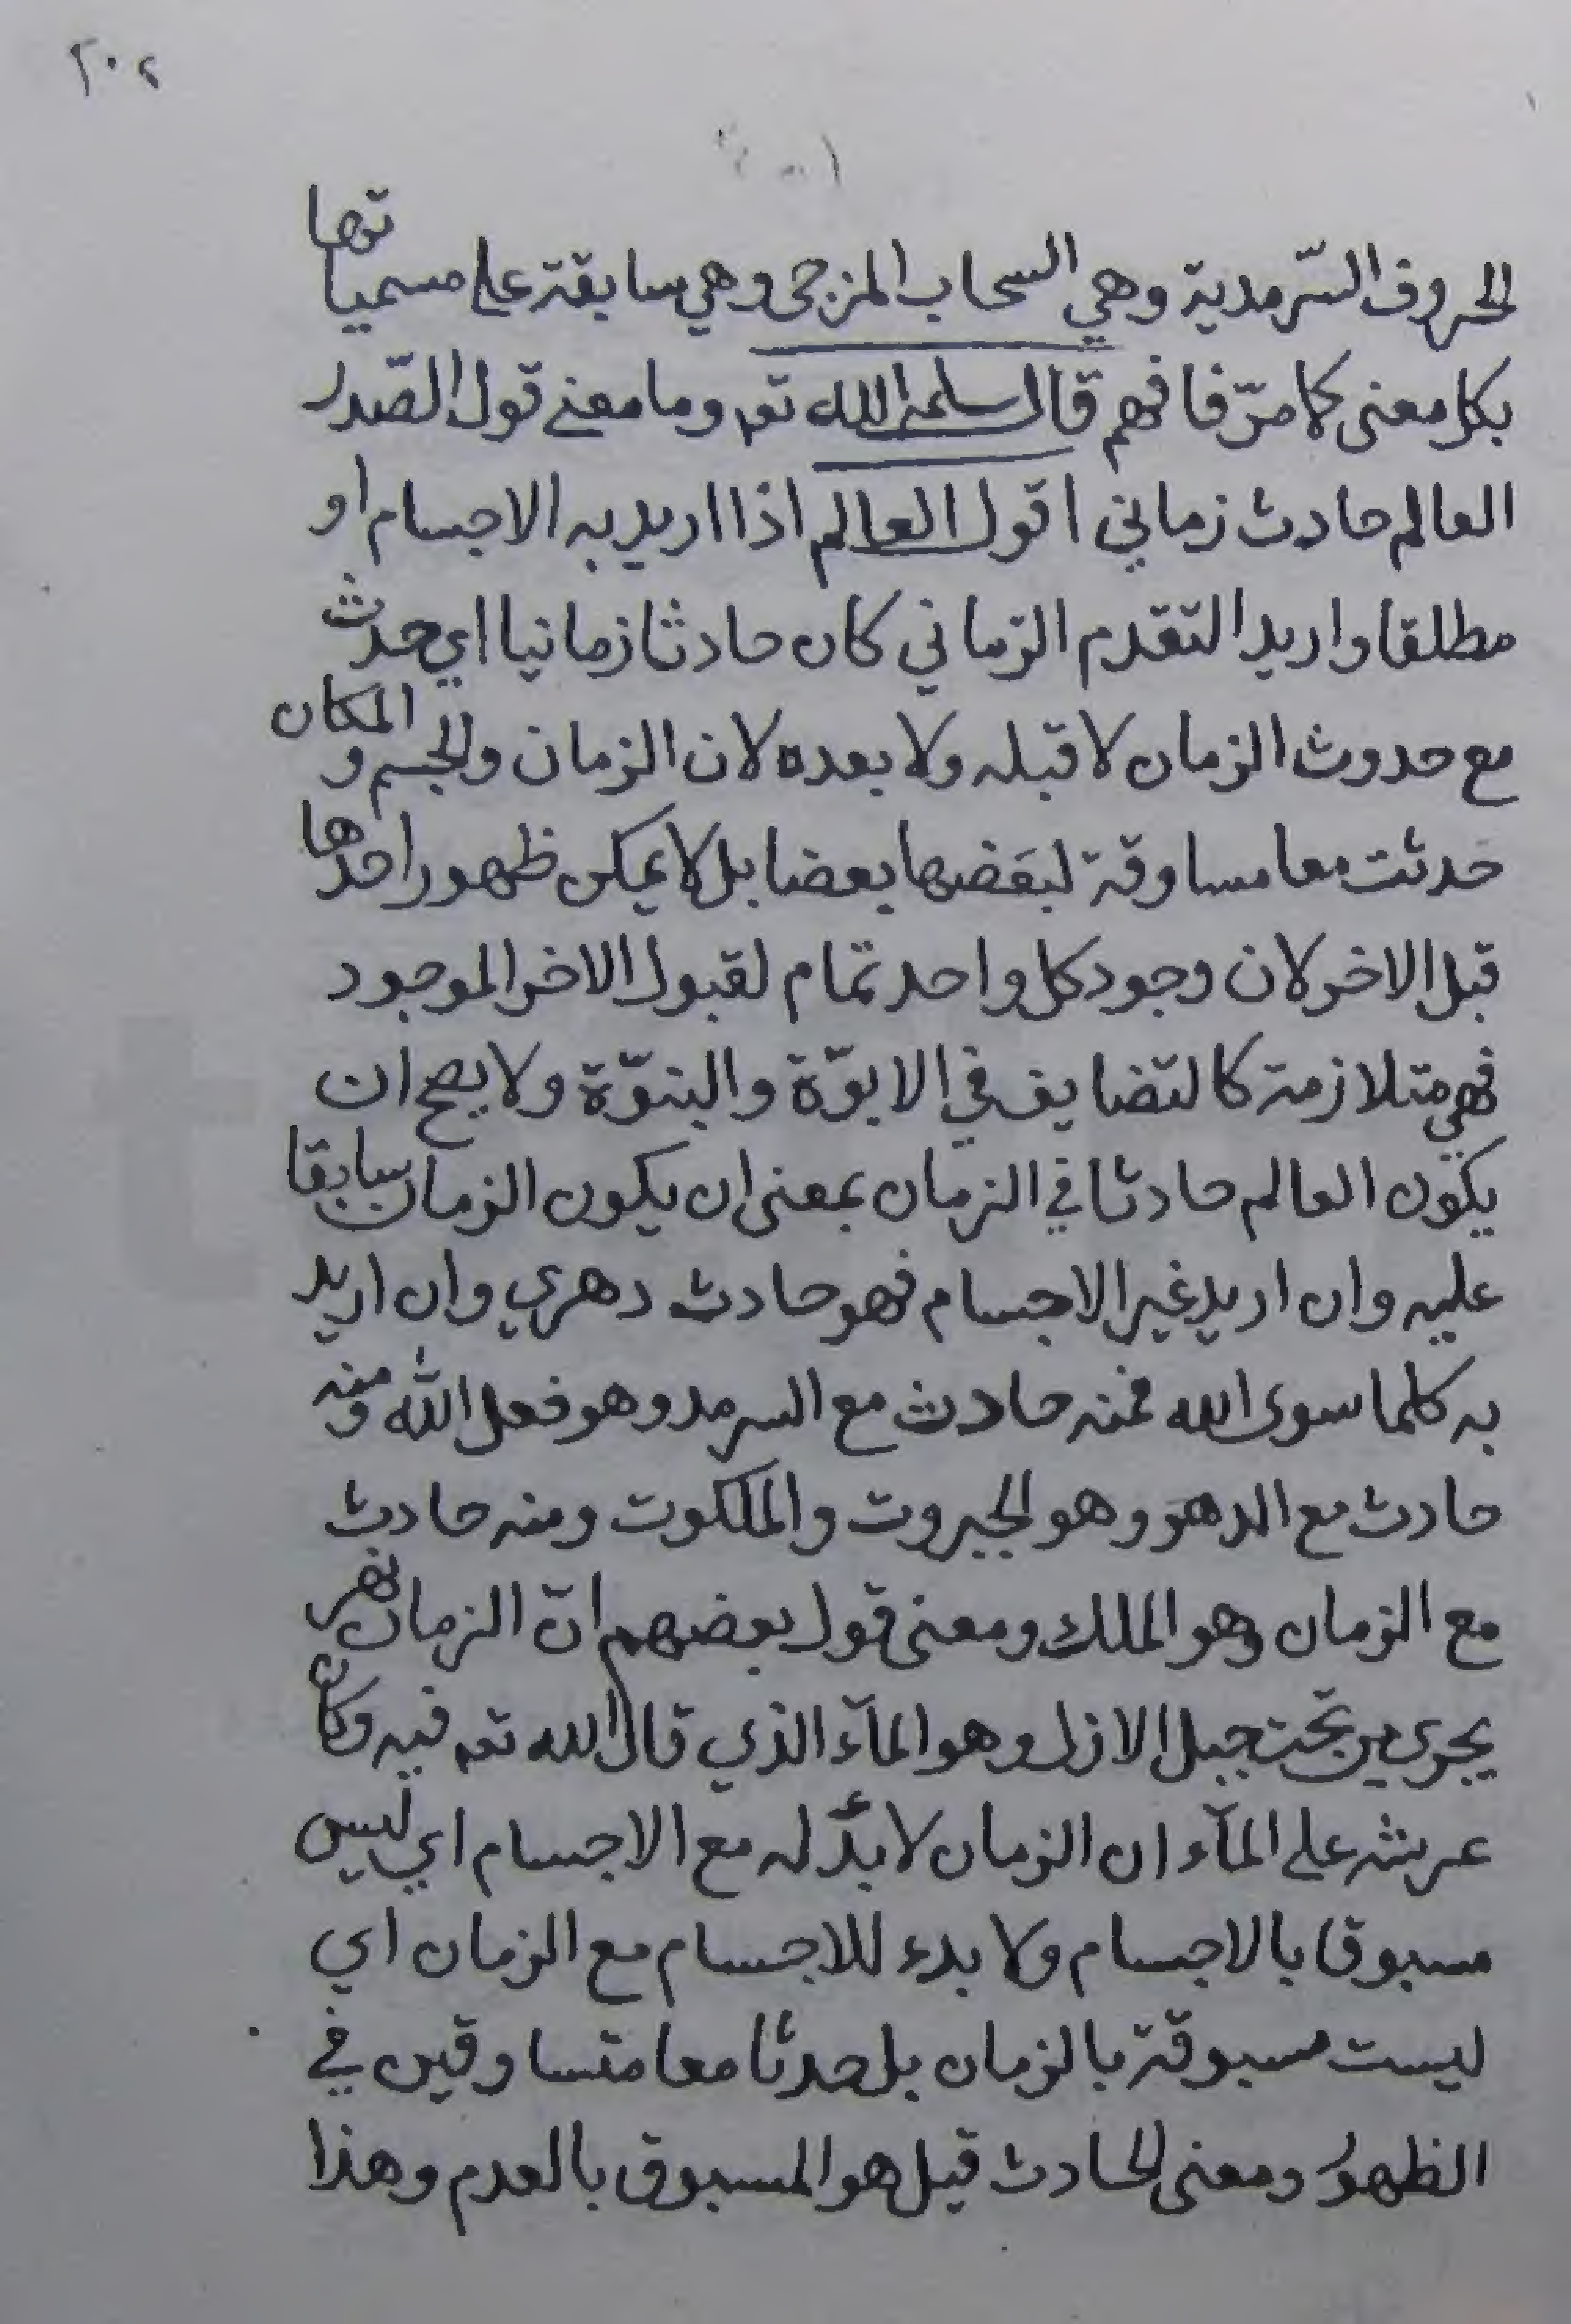 ٢٠٢
الحروف السّرمدية وهي السحاب المزجى وهي سابقة على مسمياتها
بكل معنى كما مرّ فافهم قال سلمه الله تعـ وما معنى قول الصّدر
العالم حادث زماني اقول العالم اذا اريد به الاجسام او
مطلقا واريد التقدم الزماني كان حادثا زمانيا اي حدث
مع حدوث الزمان لا قبله ولا بعده لان الزمان والجسم والمكان
حدثت معا مساوقة لبعضها بعضا بل لا يمكن ظهور احدها
قبل الاخر لان وجود كل واحد تمام لقبول الاخر الموجود
فهي متلازمة كالتضايف في الابوّة والبنوّة ولا يصح ان
يكون العالم حادثا في الزمان بمعنى ان يكون الزمان سابقا
عليه وان اريد غير الاجسام فهو حادث دهري وان اريد
به كلما سوى الله فمنه حادث مع السرمد وهو فعل الله ومنه
حادث مع الدهر وهو الجبروت والملكوت ومنه حادث
مع الزمان وهو الملك ومعنى قول بعضهم انّ الزمان نهر
يجري من تحت جبل الازل وهو المآء الذي قال الله تعـ فيه وكان
عرشه على المآء ان الزمان لا بدء له مع الاجسام اي ليس
مسبوقا بالاجسام ولا بدء للاجسام مع الزمان اي
ليست مسبوقة بالزمان بل حدثا معا متساوقين في
الظهور ومعنى الحادث قيل هو المسبوق بالعدم وهذا